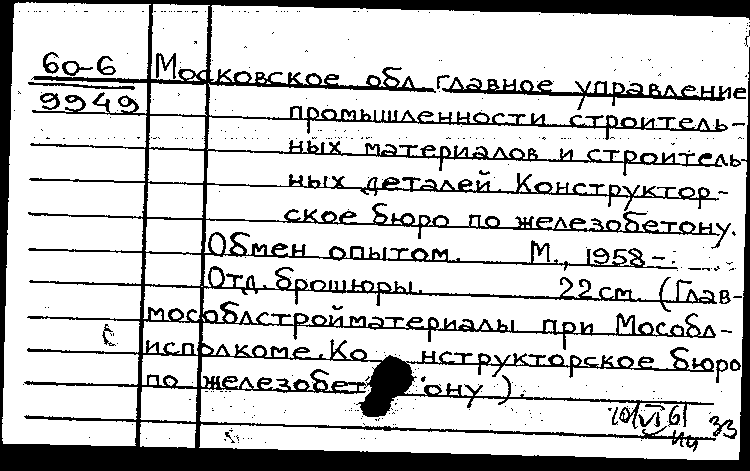 60-6 Московское обл. главное управление
9949 промышленности строитель-
ных материалов и строитель-
ных деталей. Конструктор-
ское бюро по железобетону.
Обмен опытом. М., 1958-.
Отд. брошюры. 22 см. (Глав-
мособлстройматериалы при Мособл-
исполкоме. Ко нструкторское бюро
по железобет ону).
10/VI 61